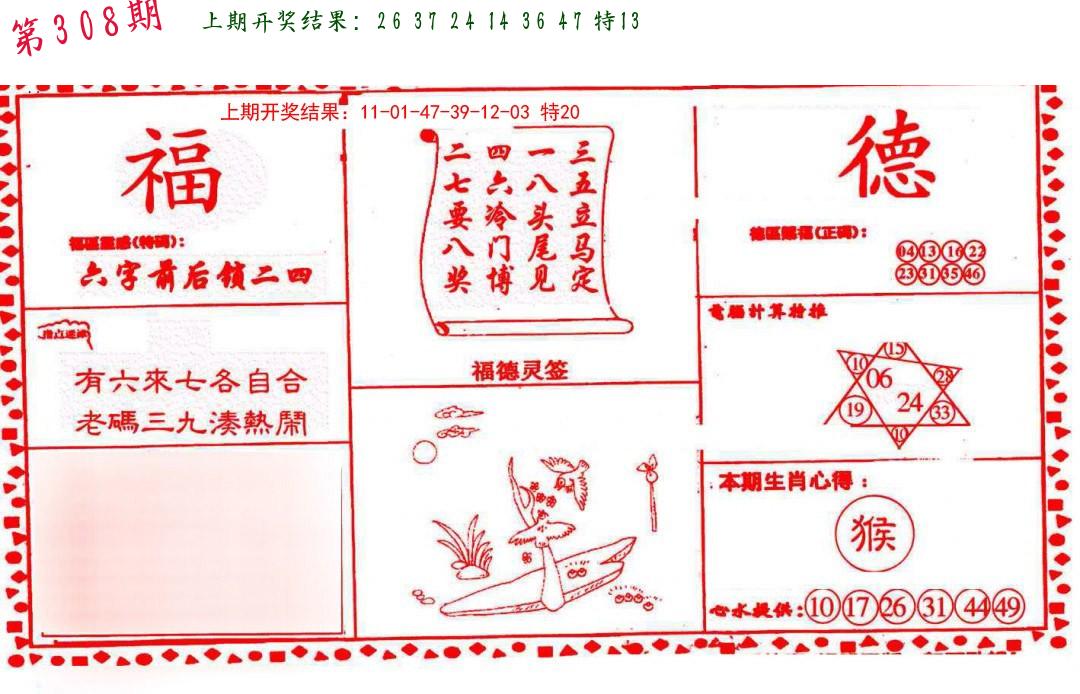 第308期
上期开奖结果：26 37 24 14 36 47 特13
上期开奖结果：11-01-47-39-12-03 特20
福
福區靈感(特碼)：
六字前后锁二四
有六來七各自合
老碼三九湊熱鬧
三五立马定
一八头尾见
四六冷门博
二七要八奖
福德灵签
德
(正碼)：
04 13 16 22
23 31 35 46
電腦計算特推
15
10
06
28
19
24
33
10
本期生肖心得：
猴
心水提供：10 17 26 31 44 49